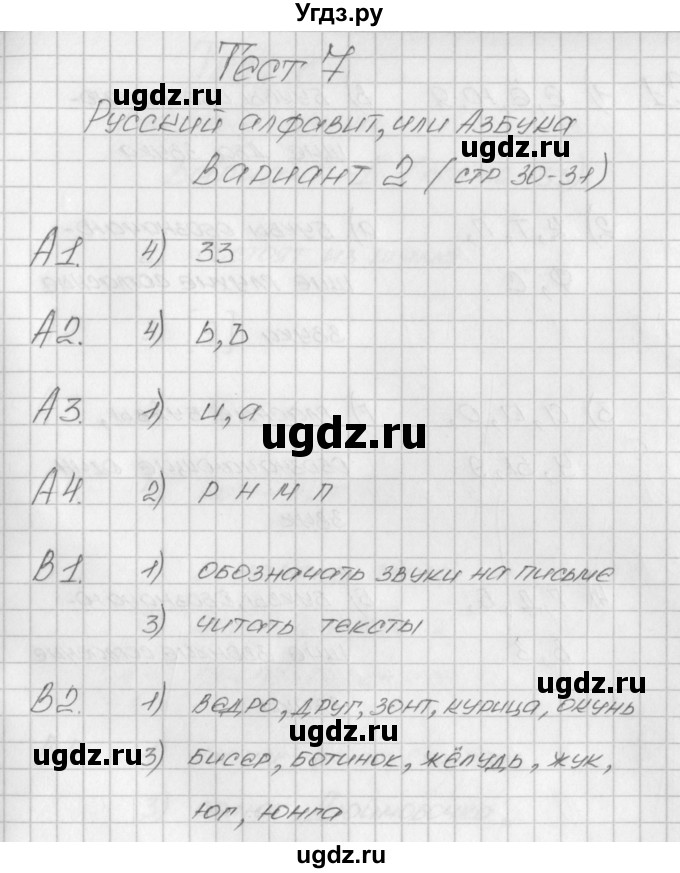 Угдз.ру
Тест 7
Русский алфавит, или Азбука
Вариант 2 (стр 30-31)
А1. 4) 33
А2. 4) ь, ъ
А3. 1) и, а
А4. 2) Р Н М П
В1. 1) обозначать звуки на письме
3) читать тексты
В2. 1) ведро, друг, зонт, курица, окунь
3) бисер, ботинок, жёлудь, жук,
юг, юнга
ugdz.ru
ugdz.ru
ugdz.ru
ugdz.ru
ugdz.ru
ugdz.ru
ugdz.ru
ugdz.ru
ugdz.ru
ugdz.ru